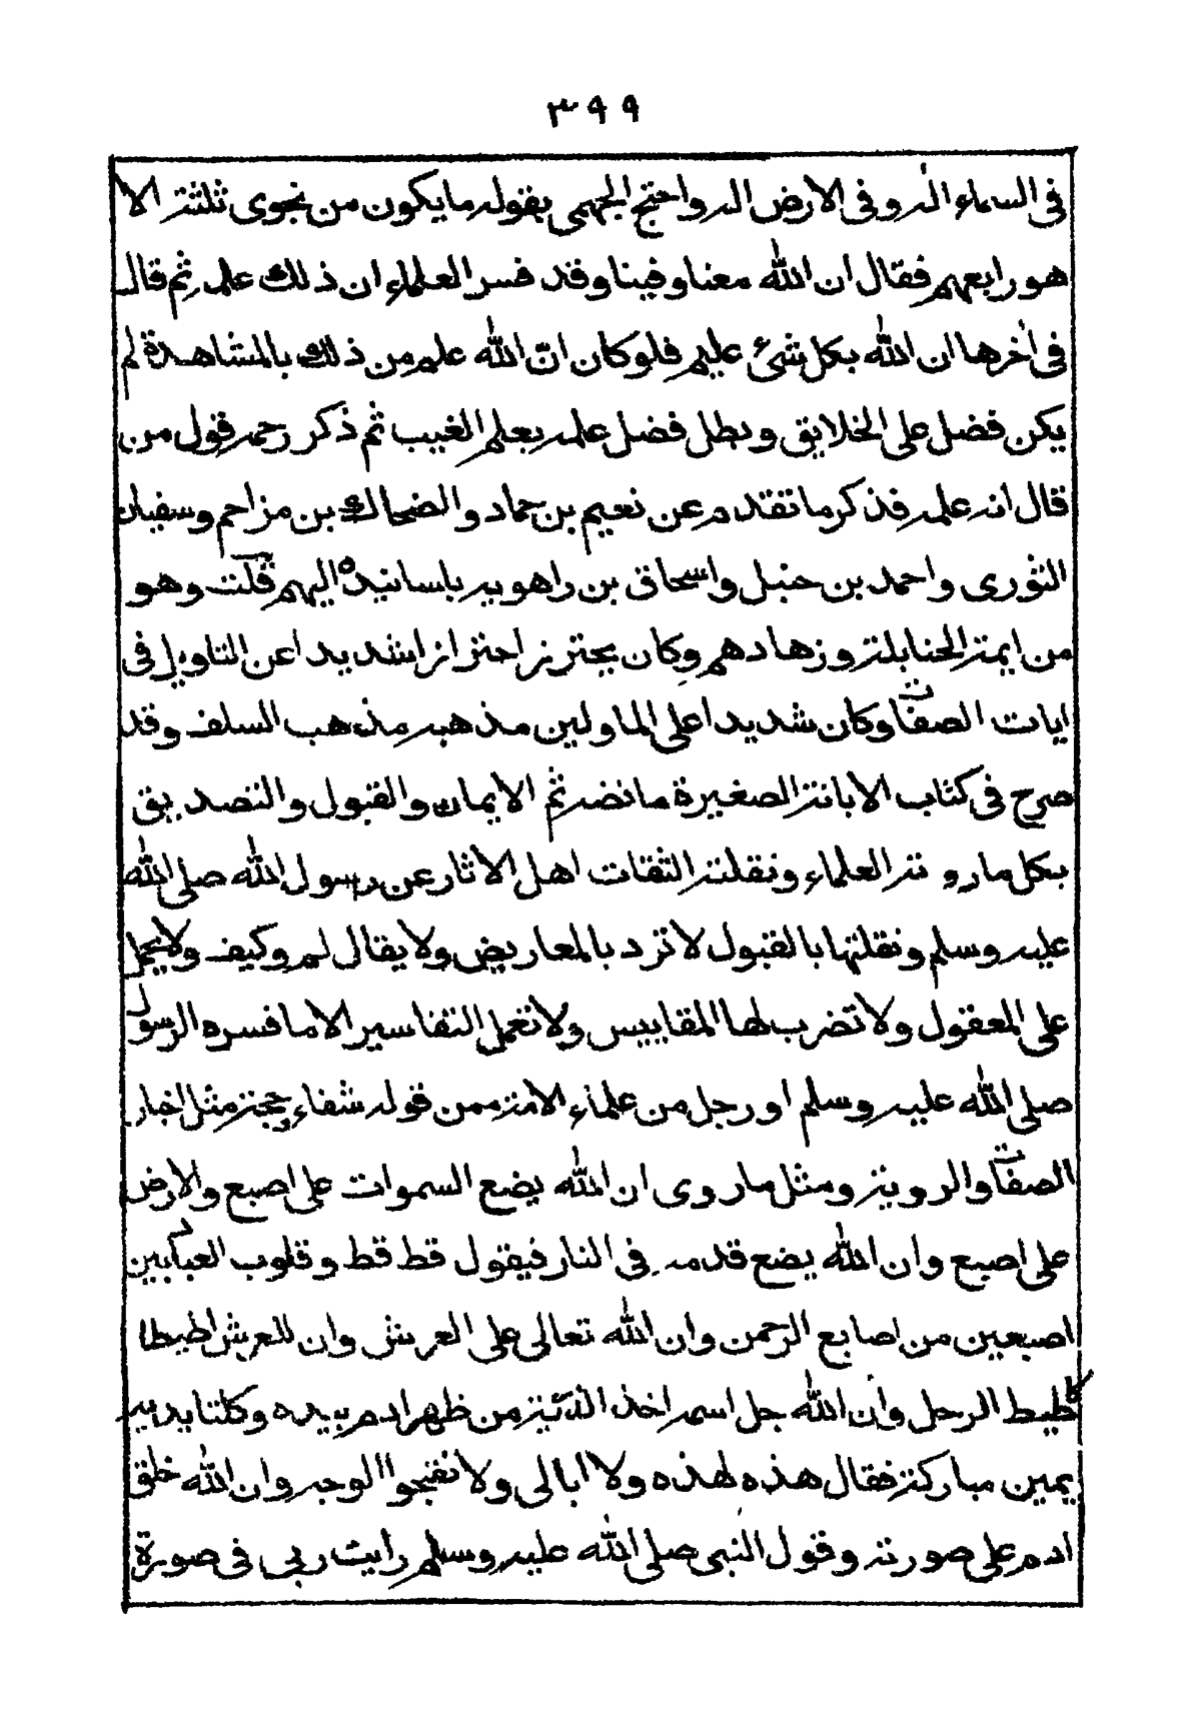 ٣٩٩
فى السماء اله وفى الارض اله واحتج الجهمى بقوله ما يكون من نجوى ثلثة الا
هو رابعهم فقال ان الله معنا وفينا وقد فسر العلماء ان ذلك علمه ثم قال
فى أخرها ان الله بكل شىء عليم فلو كان انّ الله علم من ذلك بالمشاهدة لم
يكن فضل على الخلايق وبطل فضل علمه بعلم الغيب ثم ذكر رحمه قول من
قال انه علمه فذكر ما تقدم عن نعيم بن حماد والضحاك بن مزاحم وسفيان
الثورى واحمد بن حنبل واسحاق بن راهويه باسانيده اليهم قلت وهو
من ايمة الحنابلة وزهادهم وكان يحترز احترازا شديدا عن التاويل فى
ايات الصفات وكان شديدا على الماولين مذهبه مذهب السلف وقد
صرح فى كتاب الابانة الصغيرة ما نضه ثم الايمان والقبول والتصديق
بكل ما روته العلماء ونقلته الثقات اهل الاثار عن رسول الله صلى الله
عليه وسلم ونقلتها بالقبول لا ترد بالمعاريض ولا يقال لم وكيف ولا يحمل
على المعقول ولا تضرب لها المقاييس ولا تعمل التفاسير الا ما فسره الرسول
صلى الله عليه وسلم او رجل من علماء الامة ممن قوله شفاء وحجة مثل اخبار
الصفات والروية ومثل ما روى ان الله يضع السموات على اصبع والارض
على اصبع وان الله يضع قدمه فى النار فيقول قط قط وقلوب العباد بين
اصبعين من اصابع الرحمن وان الله تعالى على العرش وان للعرش اطيطا
كاطيط الرحل وأن الله جل اسمه اخذ الذرية من ظهر ادم بيده وكلتا يديه
يمين مباركة فقال هذه لهذه ولا ابالى ولا تقبحوا الوجه وان الله خلق
ادم على صورته وقول النبى صلى الله عليه وسلم رايت ربى فى صورة